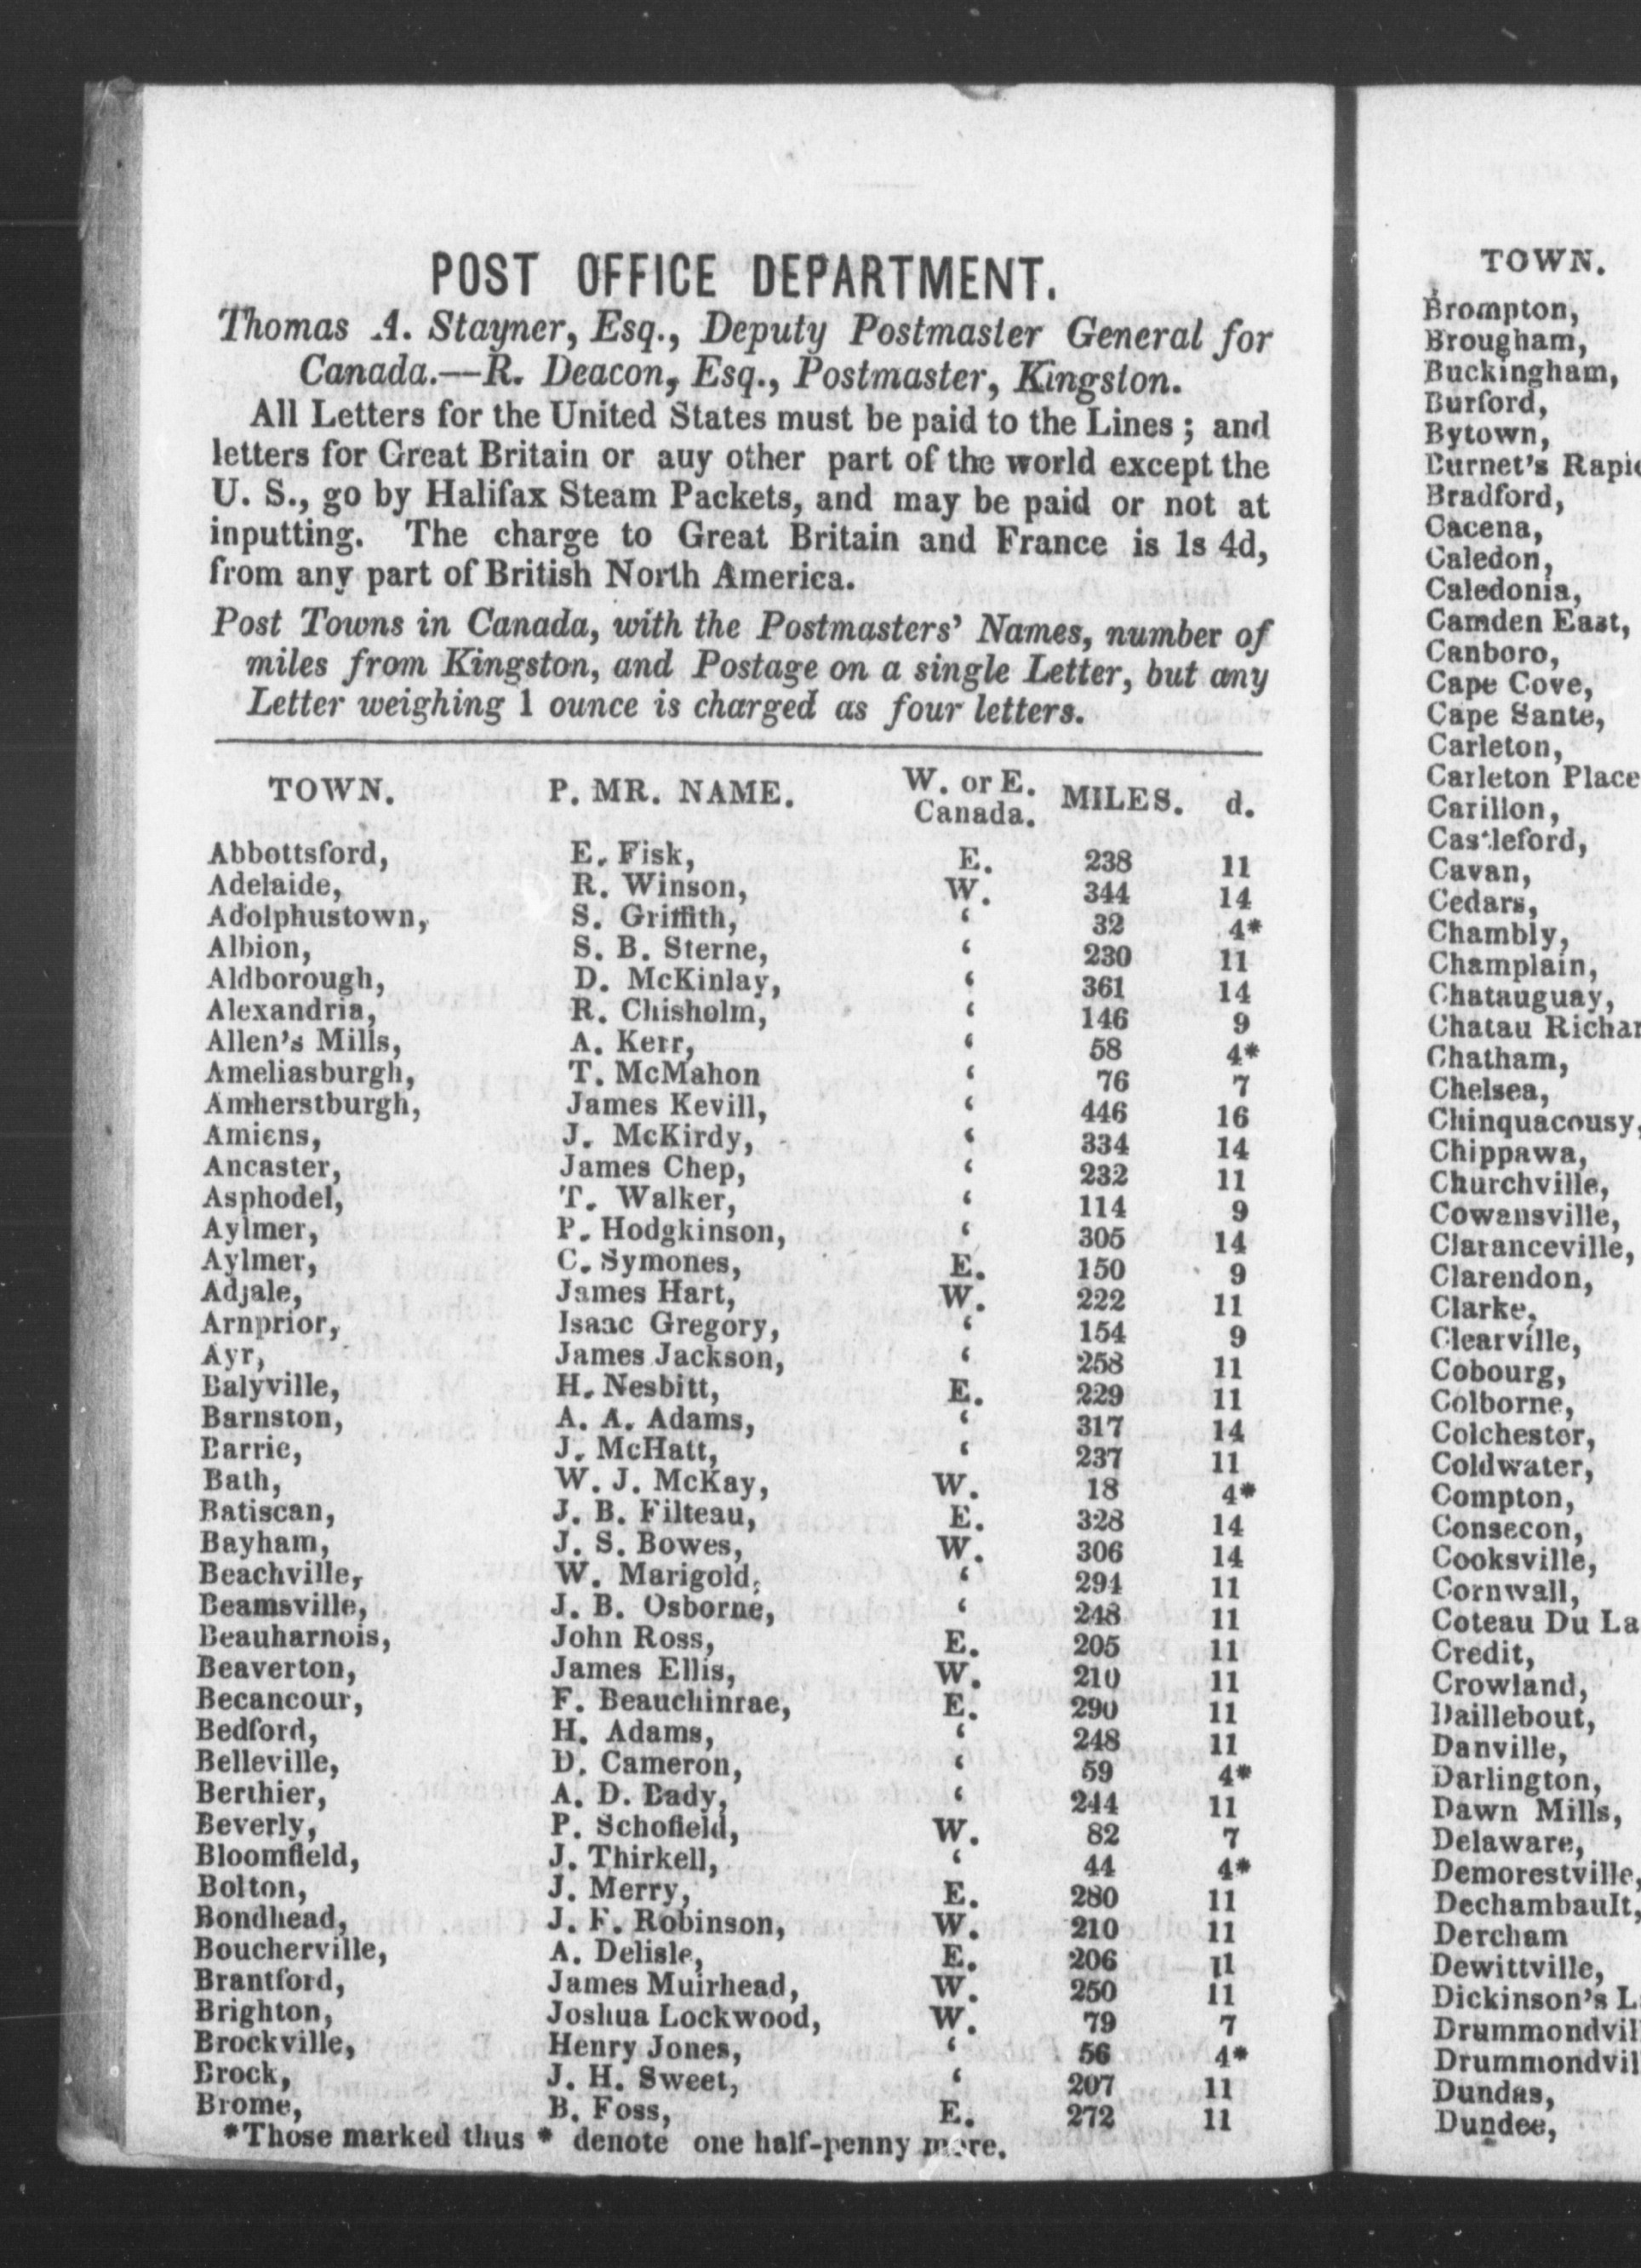 POST OFFICE DEPARTMENT.
Thomas A. Stayner, Esq., Deputy Postmaster General for
Canada.—R. Deacon, Esq., Postmaster, Kingston.
All Letters for the United States must be paid to the Lines; and
letters for Great Britain or auy other part of the world except the
U. S., go by Halifax Steam Packets, and may be paid or not at
inputting. The charge to Great Britain and France is 1s 4d,
from any part of British North America.
Post Towns in Canada, with the Postmasters' Names, number of
miles from Kingston, and Postage on a single Letter, but any
Letter weighing 1 ounce is charged as four letters.
TOWN. P. MR. NAME. W. or E. Canada. MILES. d.
Abbottsford, E. Fisk, E. 238 11
Adelaide, R. Winson, W. 344 14
Adolphustown, S. Griffith, ‘ 32 4*
Albion, S. B. Sterne, ‘ 230 11
Aldborough, D. McKinlay, ‘ 361 14
Alexandria, R. Chisholm, ‘ 146 9
Allen's Mills, A. Kerr, ‘ 58 4*
Ameliasburgh, T. McMahon ‘ 76 7
Amherstburgh, James Kevill, ‘ 446 16
Amiens, J. McKirdy, ‘ 334 14
Ancaster, James Chep, ‘ 232 11
Asphodel, T. Walker, ‘ 114 9
Aylmer, P. Hodgkinson, ‘ 305 14
Aylmer, C. Symones, E. 150 9
Adjale, James Hart, W. 222 11
Arnprior, Isaac Gregory, ‘ 154 9
Ayr, James Jackson, ‘ 258 11
Balyville, H. Nesbitt, E. 229 11
Barnston, A. A. Adams, ‘ 317 14
Barrie, J. McHatt, ‘ 237 11
Bath, W. J. McKay, W. 18 4*
Batiscan, J. B. Filteau, E. 328 14
Bayham, J. S. Bowes, W. 306 14
Beachville, W. Marigold, ‘ 294 11
Beamsville, J. B. Osborne, ‘ 248 11
Beauharnois, John Ross, E. 205 11
Beaverton, James Ellis, W. 210 11
Becancour, F. Beauchinrae, E. 290 11
Bedford, H. Adams, ‘ 248 11
Belleville, D. Cameron, ‘ 59 4*
Berthier, A. D. Eady, ‘ 244 11
Beverly, P. Schofield, W. 82 7
Bloomfield, J. Thirkell, ‘ 44 4*
Bolton, J. Merry, E. 280 11
Bondhead, J. F. Robinson, W. 210 11
Boucherville, A. Delisle, E. 206 11
Brantford, James Muirhead, W. 250 11
Brighton, Joshua Lockwood, W. 79 7
Brockville, Henry Jones, ‘ 56 4*
Brock, J. H. Sweet, ‘ 207 11
Brome, B. Foss, E. 272 11
*Those marked thus * denote one half-penny more.
TOWN.
Brompton,
Brougham,
Buckingham,
Burford,
Bytown,
Burnet's Rapid
Bradford,
Cacena,
Caledon,
Caledonia,
Camden East,
Canboro,
Cape Cove,
Cape Sante,
Carleton,
Carleton Place
Carillon,
Castleford,
Cavan,
Cedars,
Chambly,
Champlain,
Chatauguay,
Chatau Richar
Chatham,
Chelsea,
Chinquacousy,
Chippawa,
Churchville,
Cowansville,
Claranceville,
Clarendon,
Clarke,
Clearville,
Cobourg,
Colborne,
Colchester,
Coldwater,
Compton,
Consecon,
Cooksville,
Cornwall,
Coteau Du La
Credit,
Crowland,
Daillebout,
Danville,
Darlington,
Dawn Mills,
Delaware,
Demorestville,
Dechambault,
Dercham
Dewittville,
Dickinson's L
Drummondvil
Drummondvil
Dundas,
Dundee,